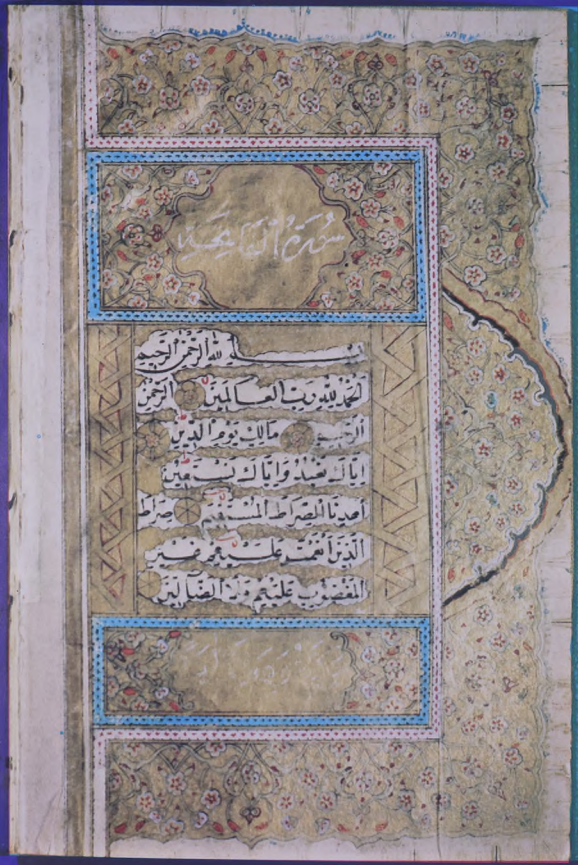 سورة الفاتحة
بسم الله الرحمن الرحيم
الحمد لله رب العالمين الرحمن
الرحيم مالك يوم الدين
اياك نعبد واياك نستعين
اهدنا الصراط المستقيم صراط
الذين انعمت عليهم غير
المغضوب عليهم ولا الضالين